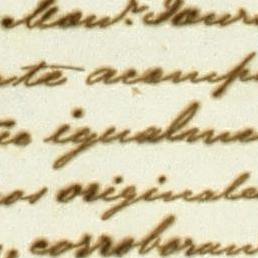 Mon.r Jour
nte acomp
ão igualme
nos originale
, corroboran